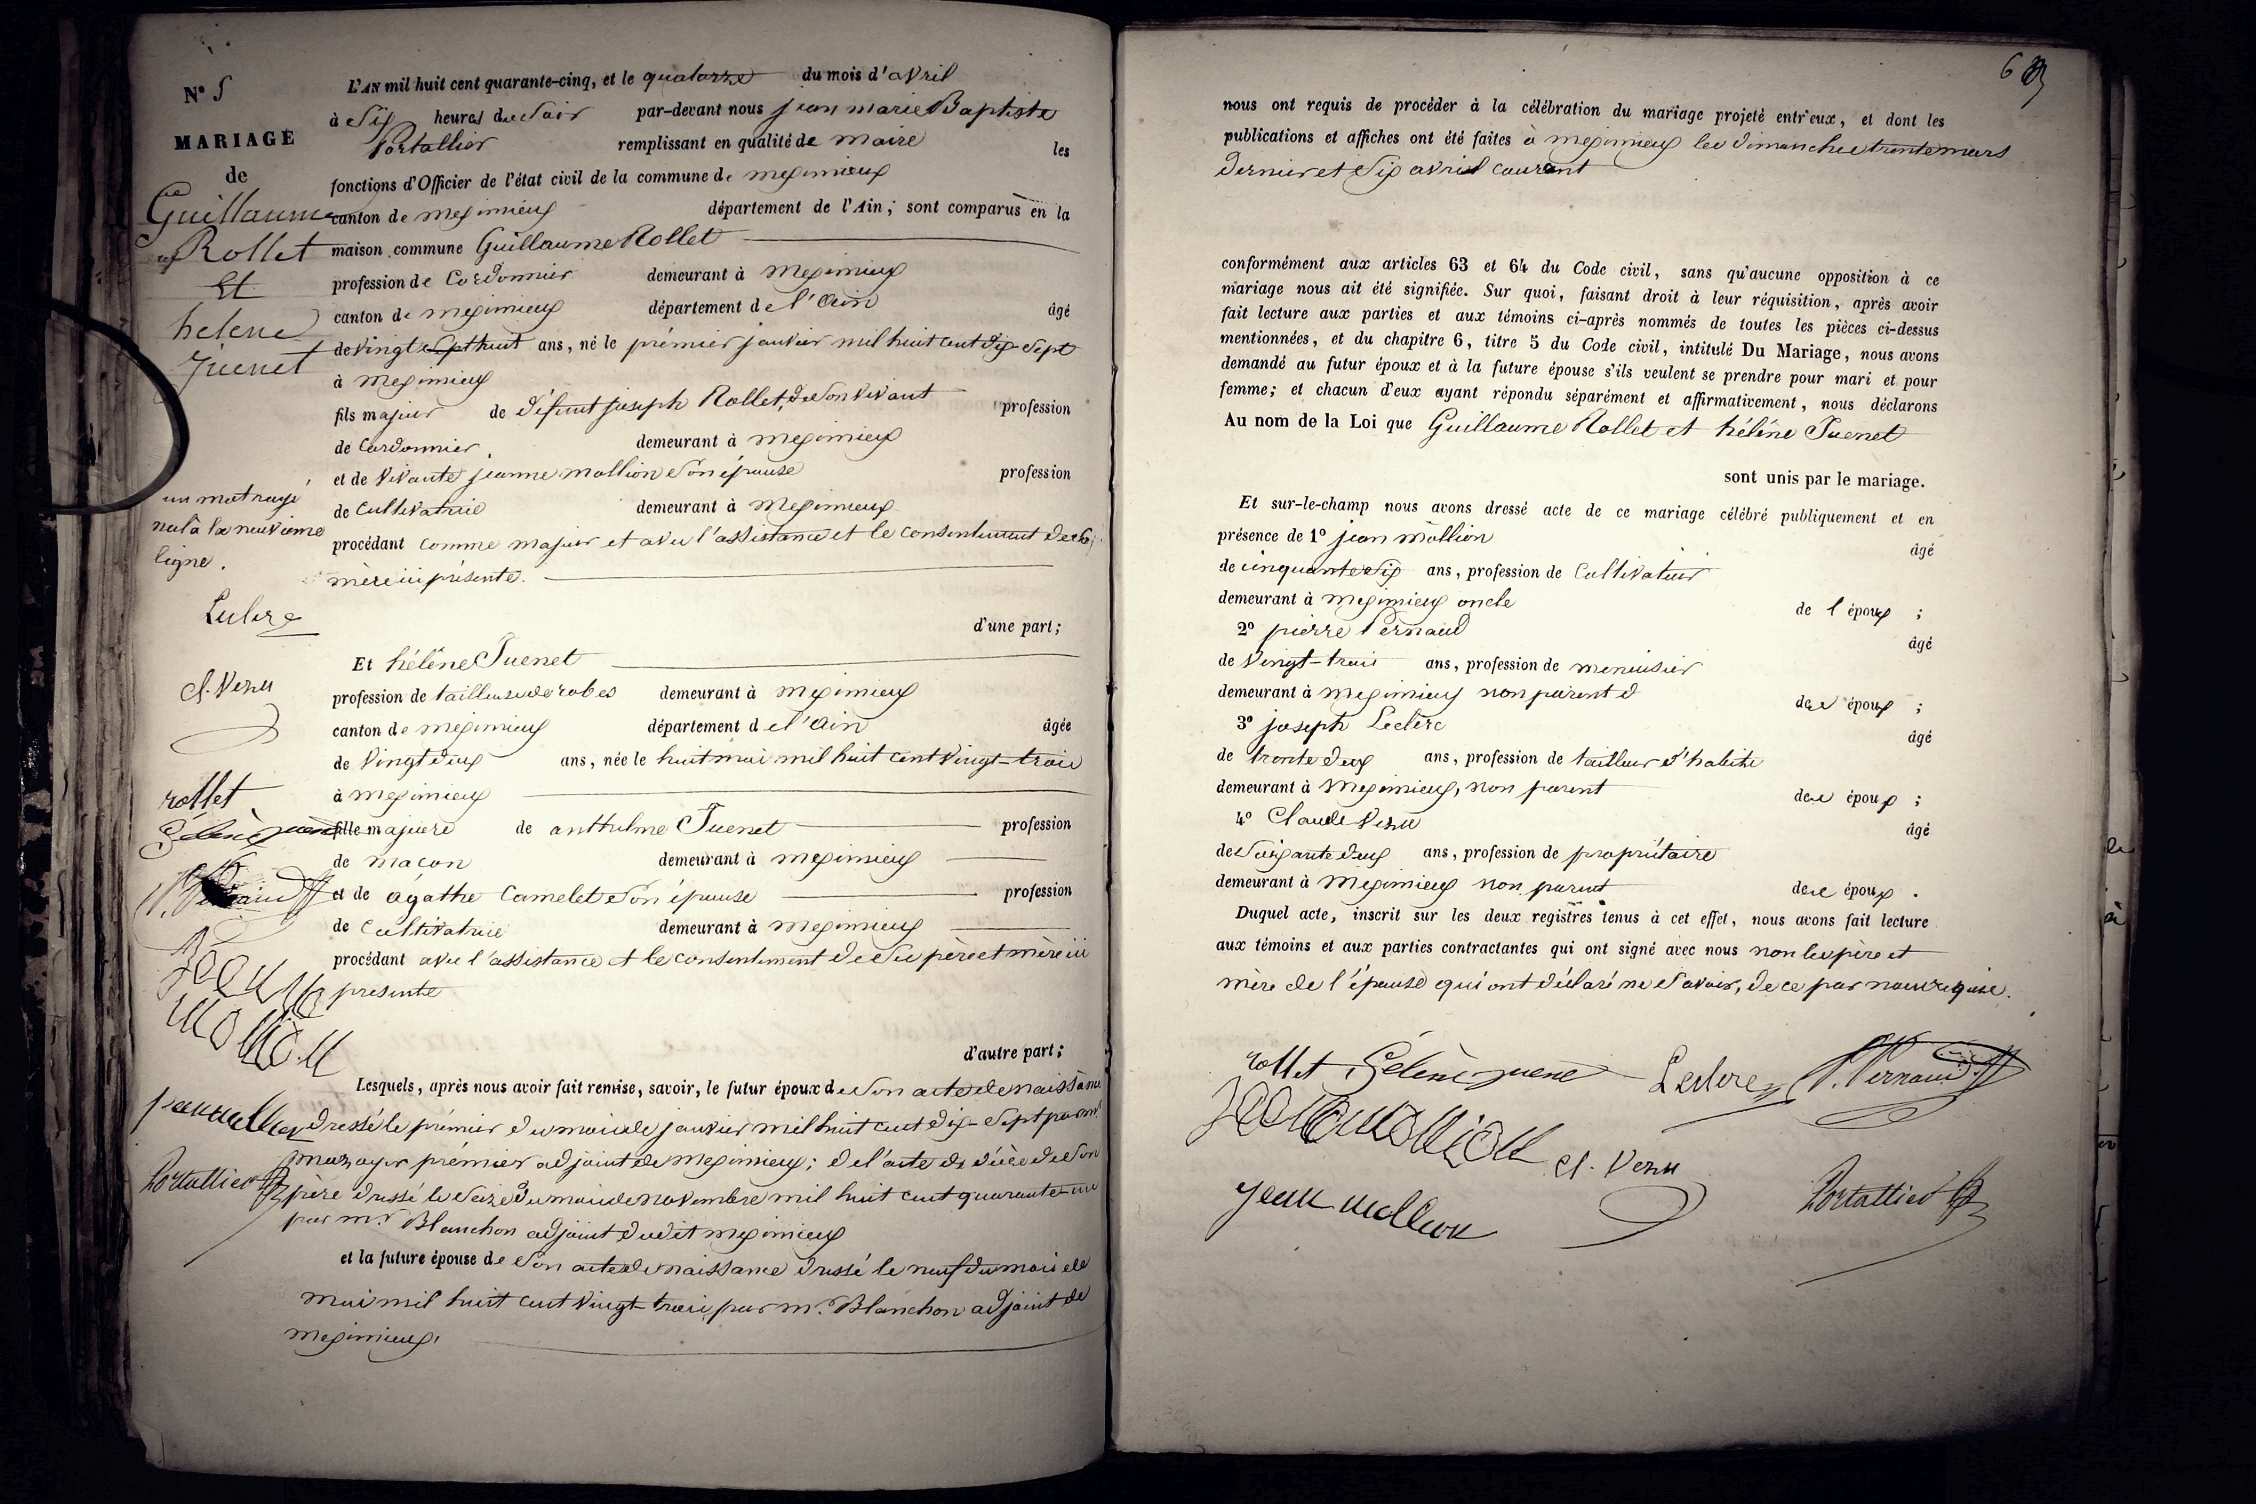 N° 5
MARIAGE
de
Guillaume
Rollet
Et
hélène
Juenet
un mot rayé
nul à la neuvième
ligne.
Leclerc
Cl. Venu
rollet
hélène juenet
P. Pernaud
Jean
mollion
jean mollion
Portallier
L'AN mil huit cent quarante-cinq, et le quatorze du mois d'avril
à Six heures du Soir par-devant nous jean marie Baptiste
Portallier remplissant en qualité de maire les
fonctions d'Officier de l'état civil de la commune de meximieux
canton de meximieux département de l'Ain; sont comparus en la
maison commune Guillaume Rollet
profession de Cordonnier demeurant à Meximieux
canton de meximieux département de l'Ain âgé
de vingt sept huit ans, né le prémier janvier mil huit cent dix-sept
à Meximieux
fils majeur de défunt joseph Rollet, de Son vivant profession
de Cordonnier, demeurant à meximieux
et de vivante jeanne mollion Son épouse profession
de Cultivatrice demeurant à Meximieux
procédant comme majeur et avec l'assistance et le consentement de Sa
mère ici présente.
d'une part;
Et hélène Juenet
profession de tailleuse de robes demeurant à meximieux
canton de meximieux département de l'Ain âgée
de vingt deux ans, née le huit mai mil huit cent vingt-trois
à meximieux
fille majeure de anthelme Juenet profession
de macon demeurant à meximieux
et de agathe Camelet Son épouse profession
de Cultivatrice demeurant à meximieux
procédant avec l'assistance et le consentement de Ses père et mère ici
présents
d'autre part;
Lesquels, après nous avoir fait remise, savoir, le futur époux de Son acte de naissance
dressé le prémier du mois de janvier mil huit cent dix-Sept par mr
mazoyer prémier adjoint de Meximieux; de l'acte de décès de Son
père dressé le Seize du mois de novembre mil huit cent quarante-un
par mr. Blanchon adjoint dudit meximieux
et la future épouse de Son acte de naissance dressé le neuf du mois de
mai mil huit cent vingt-trois par mr. Blanchon adjoint de
meximieux.
nous ont requis de procéder à la célébration du mariage projeté entr'eux, et dont les
publications et affiches ont été faites à meximieux les dimanches trente mars
dernier et Six avril courant
conformément aux articles 63 et 64 du Code civil, sans qu'aucune opposition à ce
mariage nous ait été signifiée. Sur quoi, faisant droit à leur réquisition, après avoir
fait lecture aux parties et aux témoins ci-après nommés de toutes les pièces ci-dessus
mentionnées, et du chapitre 6, titre 5 du Code civil, intitulé Du Mariage, nous avons
demandé au futur époux et à la future épouse s'ils veulent se prendre pour mari et pour
femme; et chacun d'eux ayant répondu séparément et affirmativement, nous déclarons
Au nom de la Loi que Guillaume Rollet et hélène Juenet
sont unis par le mariage.
Et sur-le-champ nous avons dressé acte de ce mariage célébré publiquement et en
présence de 1° jean mollion âgé
de cinquante Six ans, profession de Cultivateur
demeurant à meximieux oncle de l'époux ;
2° pierre Pernaud âgé
de vingt-trois ans, profession de menuisier
demeurant à meximieux non parent d des époux ;
3° joseph Leclerc âgé
de trente deux ans, profession de tailleur d'habits
demeurant à Meximieux, non parent des époux ;
4° Claude Venu âgé
de Soixante deux ans, profession de propriétaire
demeurant à Meximieux non parent des époux .
Duquel acte, inscrit sur les deux registres tenus à cet effet, nous avons fait lecture
aux témoins et aux parties contractantes qui ont signé avec nous non les père et
mère de l'épouse qui ont déclaré ne Savoir, de ce par nous requis.
rollet hélène juenet Leclerc P. Pernaud
Jean mollion Cl. Venu
jean mollion Portallier